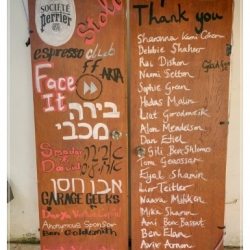 SOCIÉTÉ
Perrier
Stoli
espresso club
AKTA
Face
It
בירה
מכבי
Smadar
&
David
אבן חסן
GARAGE GEEKS
Anonymous Sponsor
Ben Goldsmith
Thank you
Sharonna Karni Cohen
Debbie Shahar
Rai Dishon
Naomi Setton
Sophie Green
Hadas Malin
Liat Gorodenzik
Alon Mendelson
Dan Etiel
Gili Ben-Shlomo
Tom Genossar
Eyal Shanin
Lior Teitler
Naava Mihken
Mika Sharon
Ami Ben Bassat
Ben Elan
Aviv Aram